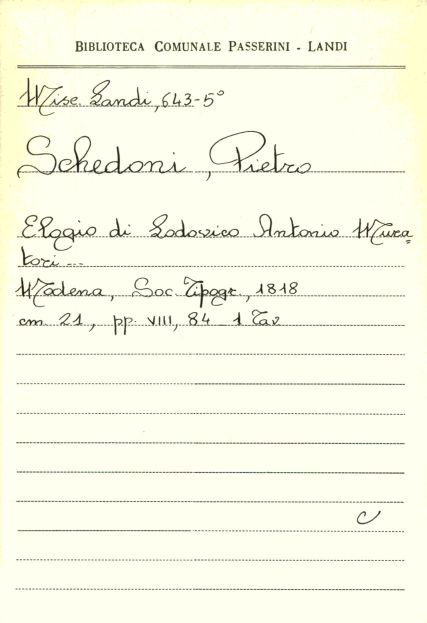 BIBLIOTECA COMUNALE PASSERINI - LANDI
Misc. Landi, 643-5°
Schedoni, Pietro
Elogio di Lodovico Antonio Mura=
tori ...
Modena, Soc. Tipogr., 1818
cm. 21, pp. VIII, 84 _ 1 Tav.
C